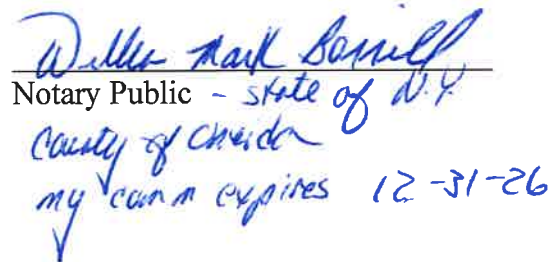 Mark
Notary Public - state of N.Y.
County of Oneida
my comm expires 12-31-26